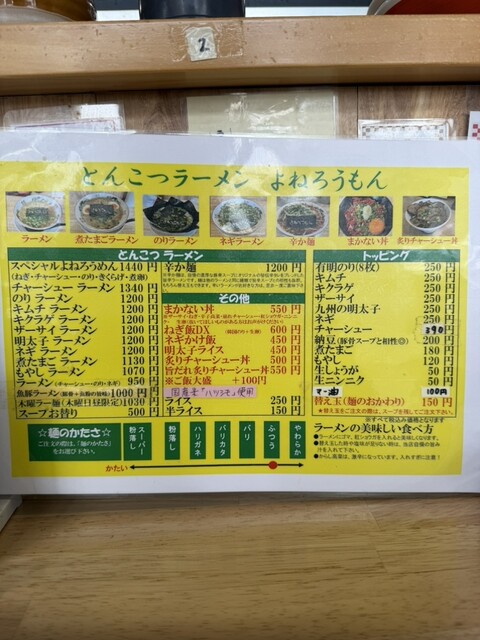 2
とんこつラーメン よねろうもん
ラーメン
煮たまごラーメン
のりラーメン
ネギラーメン
辛か麺
まかない丼
炙りチャーシュー丼
とんこつ ラーメン
スペシャルよねろうめん 1440 円
(ねぎ・チャーシュー・のり・きくらげ・煮卵)
チャーシュー ラーメン 1340 円
のり ラーメン 1200 円
キムチ ラーメン 1200 円
キクラゲ ラーメン 1200 円
ザーサイ ラーメン 1200 円
明太子 ラーメン 1200 円
ネギ ラーメン 1200 円
煮たまご ラーメン 1130 円
もやし ラーメン 1070 円
ラーメン(チャーシュー・のり・ネギ) 950 円
魚豚ラーメン 1000 円
木曜ラー麺(木曜日限定)1030 円
スープお替り 500 円
辛か麺 1200 円
その他
まかない丼 550 円
ねぎ飯DX 600 円
ネギかけ飯 430 円
明太子ライス 450 円
炙りチャーシュー丼 500 円
旨だれ炙りチャーシュー丼 550 円
※ご飯大盛 +100円
ライス 250 円
半ライス 150 円
トッピング
有明のり(8枚) 250 円
キムチ 250 円
キクラゲ 250 円
ザーサイ 250 円
九州の明太子 250 円
ネギ 250 円
チャーシュー 390 円
納豆(豚骨スープと相性◎) 200 円
煮たまご 180 円
もやし 120 円
生しょうが 50 円
生ニンニク 50 円
マー油 100円
替え玉(麺のおかわり) 150 円
★替え玉をご注文の際は、スープを残してご注文下さい。
※すべて税込み価格となります
☆麺のかたさ☆
ご注文の際は、「麺のかたさ」
をお選び下さい。
かたい
スーパー粉落し
粉落し
ハリガネ
バリカタ
バリ
ふつう
やわらか
ラーメンの美味しい食べ方
●ラーメンにゴマ、紅ショウガを入れると美味しくなります。
●からし高菜は、激辛になっています。入れすぎに注意！